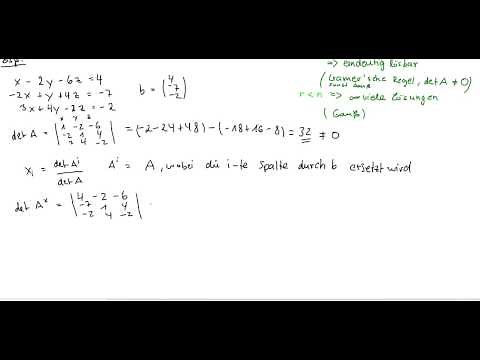 Bsp.:
x - 2y - 6z = 4
-2x + y + 4z = -7
3x + 4y - 2z = -2
b = (4 -7 -2)
=> eindeutig lösbar
(Cramer'sche Regel, det A ≠ 0)
sonst Gauß
r < n => ∞ viele Lösungen
(Gauß)
x y z
det A = | 1 -2 -6 | = (-2-24+48) - (-18+16-8) = 32 ≠ 0
-2 1 4
3 4 -2
xᵢ = det Aⁱ / det A Aⁱ = A, wobei die i-te Spalte durch b ersetzt wird
det Aˣ = | 4 -2 -6 |
-7 1 4
-2 4 -2